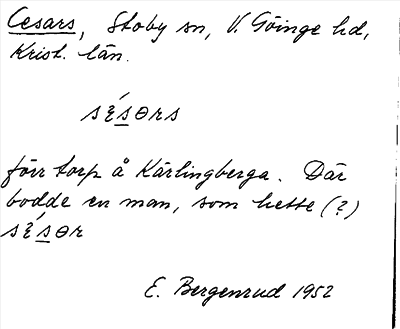 Cesars, Stoby sn, V. Göinge hd,
Krist. län.
förr torp å Kärlingberga. Där
bodde en man, som hette (?)
E. Bergenrud 1952